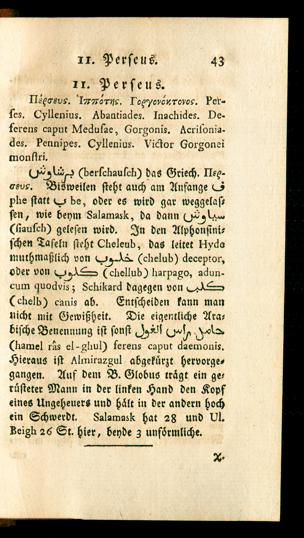 11. Perseus. 43
11. Perseus.
Πέρσευς. Ἱππότης. Γοργονόκτονος. Per-
ses. Cyllenius. Abantiades. Inachides. De-
ferens caput Medusae, Gorgonis. Acrisionia-
des. Pennipes. Cyllenius. Victor Gorgonei
monstri.
برشاوش (berschausch) das Griech. Περ-
σευς. Bisweilen steht auch am Anfange ف
phe statt ب be, oder es wird gar weggelas-
sen, wie beym Salamask, da dann سياوش
(siausch) gelesen wird. In den Alphonsini-
schen Tafeln steht Cheleub, das leitet Hyde
muthmaßlich von خلوب (chelub) deceptor,
oder von كلوب (chellub) harpago, adun-
cum quodvis; Schikard dagegen von كلب
(chelb) canis ab. Entscheiden kann man
nicht mit Gewißheit. Die eigentliche Ara-
bische Benennung ist sonst حامل راس الغول
(hamel râs el-ghul) ferens caput daemonis.
Hieraus ist Almirazgul abgekürzt hervorge-
gangen. Auf dem B. Globus trägt ein ge-
rüsteter Mann in der linken Hand den Kopf
eines Ungeheuers und hält in der andern hoch
ein Schwerdt. Salamask hat 28 und Ul.
Beigh 26 St. hier, beyde 3 unförmliche.